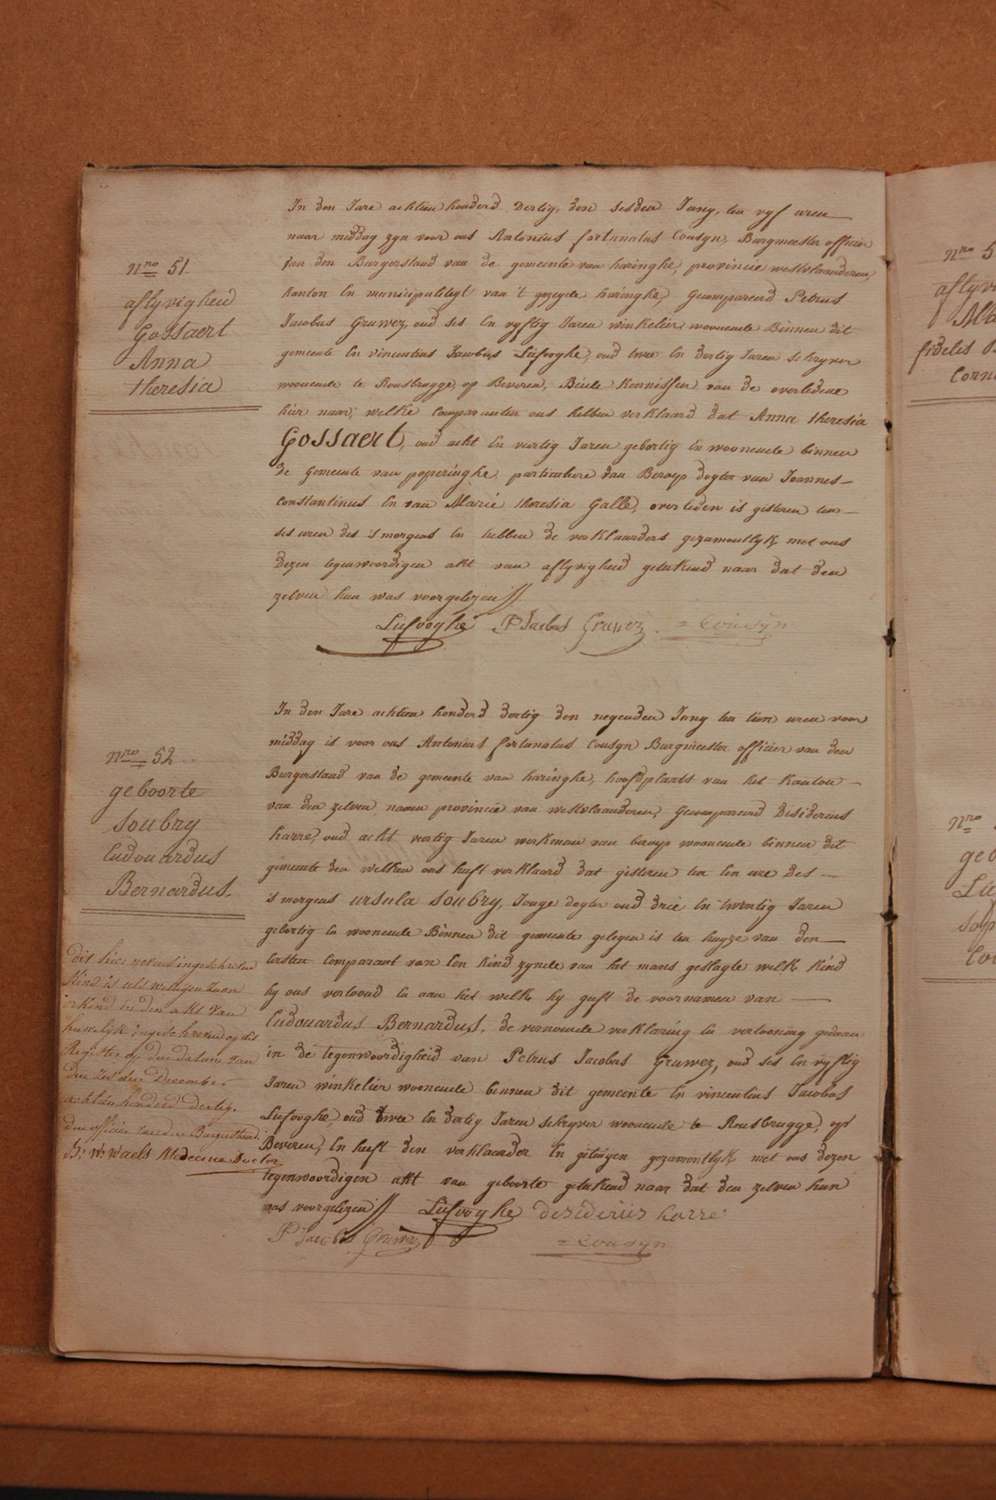 Nro 51.
aflyvigheid
Gossaert
Anna
theresia
In den Jare achtien honderd dertig, den sesden Juny, ten vyf uren
naar middag zyn voor ons Antonius fortunatus Cousyn, Burgmeester officier
van den Burgerstand van de gemeente van haringhe, provincie westvlaenderen,
kanton en municipaliteyt van 't gezeyde haringhe, Gecompareerd Petrus
Jacobus Gruwez, oud ses en vyftig Jaren winkelier woonende Binnen dit
gemeente en vincentius Jacobus Liefooghe, oud twee en dertig Jaren schryver
woonende te Rousbrugge, op Beveren, Beide kennissen van de overledene
hier naar, welke comparanten ons hebben verklaard dat Anna theresia
Gossaert, oud acht en veertig Jaren gebortig en woonende binnen
de gemeente van poperinghe, particuliere van Beroep dogter van Joannes
constantinus en van Marie theresia Galle, overleden is gisteren ten
ses uren des 's morgens en hebben de verklaarders gezamentlyk met ons
dezen tegenwoordigen akt van aflyvigheid geteekend naar dat den
zelven hun was voorgelezen
Liefooghe P Jacobus Gruwez = Cousyn
Nro 52
geboorte
Soubry
Ludouardus
Bernardus.
In den Jare achtien honderd dertig den negenden Juny ten tien uren voor
middag is voor ons Antonius fortunatus Cousyn Burgmeester officier van den
Burgerstand van de gemeente van haringhe, hoofdplaets van het kanton
van den zelven namen provincie van westvlaanderen, Gecompareerd Desiderius
harre, oud acht vertig Jaren werkman van beroep woonende binnen dit
gemeente den welken ons heeft verklaard dat gisteren ten een ure des
's morgens ursula Soubry, Jonge dogter oud drie en twentig Jaren
gebortig en woonende Binnen dit gemeente gelegen is ten huyze van den
eersten comparant van Een kind zynde van het mans geslagte welk kind
hy ons vertoond en aan het welk hy geeft de voornamen van
Ludouardus Bernardus, de vernoemde verklaring en vertooning gedaen
in de tegenwoordigheid van Petrus Jacobus Gruwez, oud ses en vyftig
Jaren winkelier woonende binnen dit gemeente en vincentius Jacobus
Liefooghe, oud twee en dertig Jaren schryver woonende te Rousbrugge, op
Beveren, En heeft den verklaarder En getuigen gezamentlyk met ons dezen
tegenwoordigen akt van geboorte geteekend naar dat den zelven hun
was voorgelezen Liefooghe desiderius harre
P Jacobus Gruwez = Cousyn
Dit hier nevens ingeschreven
kind is als wettigen zoon
erkend in den akt van
huwelyk ingeschreven op dit
Register op den datum van
den December
achtien honderd dertig.
den officier van den Burgerstand.
Waels Medecine Doctor
Nro 5
fidelis
Corn
Nro
geb